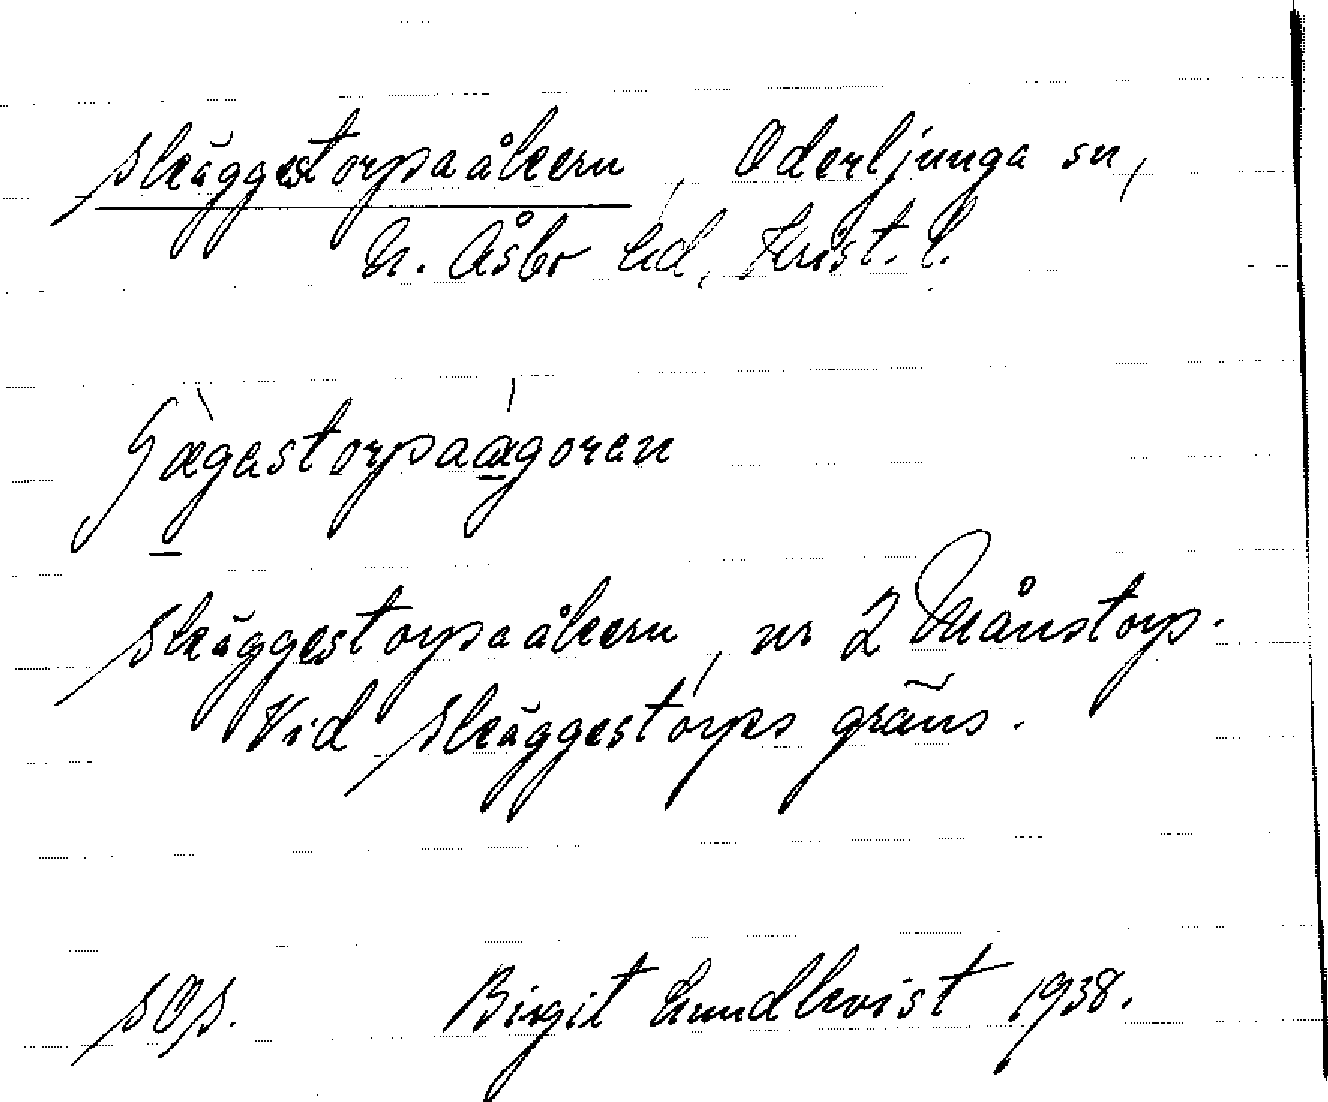 Skäggestorpaåkern, Oderljunga sn,
N. Åsbo hd, Krist. l.
Skäggestorpaåkern, nr 2 Månstorp.
Vid Skäggestorps gräns.
SOS. Birgit Lundkvist 1938.